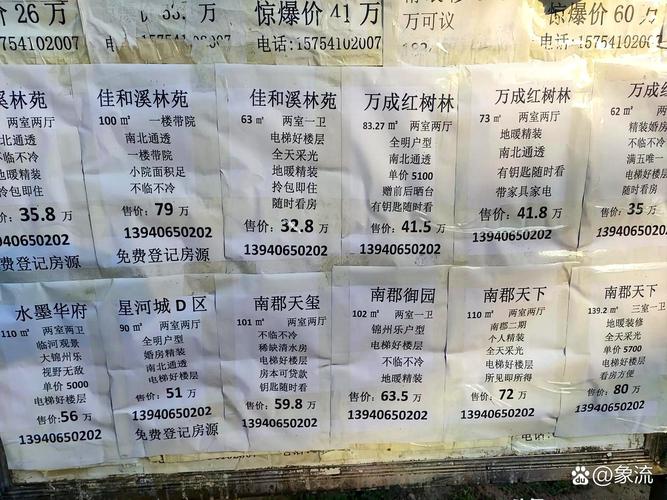 价26万
15754102007
33.
万
15754102007
惊爆价41万
电话:15754102007
万可议
惊爆价60万
电话:15754102007
溪林苑
两室两厅
南北通透
不临不冷
地暖精装
拎包即住
35.8万
13940650202
登记房源
佳和溪林苑
100㎡ 一楼带院
南北通透
一楼带院
小院面积足
不临不冷
售价:79万
13940650202
免费登记房源
佳和溪林苑
63㎡ 两室一卫
电梯好楼层
全天采光
地暖精装
拎包即住
随时看房
售价:32.8万
13940650202
万成红树林
83.27㎡ 两室两厅
全明户型
南北通透
单价5100
赠前后晒台
有钥匙随时看
售价:41.5万
13940650202
万成红树林
73㎡ 两室两厅
地暖精装
南北通透
有钥匙随时看
带家具家电
售价:41.8万
13940650202
万成红树林
62㎡ 两室
精装婚房
不临不冷
满五唯一
电梯好楼层
随时看房
售价:35万
13940650202
水墨华府
110㎡ 两室两卫
临河观景
大锦州乐
视野无敌
单价5000
电梯好楼层
售价:56万
13940650202
星河城D区
90㎡ 两室两厅
全明户型
婚房精装
南北通透
电梯好楼层
售价:51万
13940650202
免费登记房源
南郡天玺
101㎡ 两室两厅
不临不冷
稀缺清水房
电梯好楼层
房本可贷款
钥匙随时看
售价:59.8万
13940650202
南郡御园
102㎡ 两室两厅
锦州乐户型
电梯好楼层
不临不冷
地暖精装
售价:63.5万
13940650202
南郡天下
110㎡ 两室两厅
南郡二期
个人精装
全天采光
电梯好楼层
所见即所得
售价:72万
13940650202
南郡天下
139.2㎡ 三室一卫
地暖装修
全天采光
单价5700
电梯好楼层
看房方便
售价:80万
13940650202
Baidu@象流